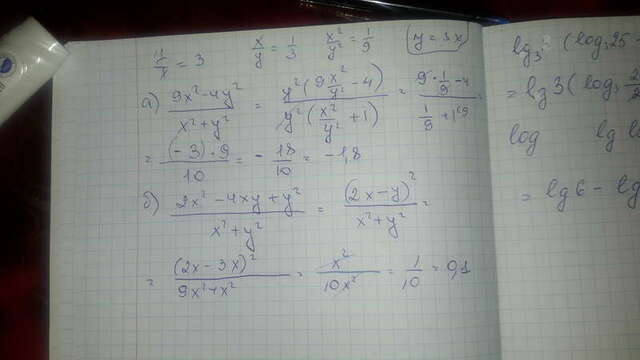 y/x = 3   x/y = 1/3   x²/y² = 1/9   y = 3x
а) (9x²-4y²)/(x²+y²) = y²(9 x²/y² - 4)/y²(x²/y² + 1) = (9·1/9 - 4)/(1/9 + 1)
= (-3)·9/10 = - 18/10 = -1,8
б) (2x² - 4xy + y²)/(x² + y²) = (2x-y)²/(x²+y²) =
= (2x - 3x)²/(9x²+x²) = x²/10x² = 1/10 = 0,1
lg 3 (log₃25 -
= lg 3 (log₃
log   lg
= lg 6 - lg